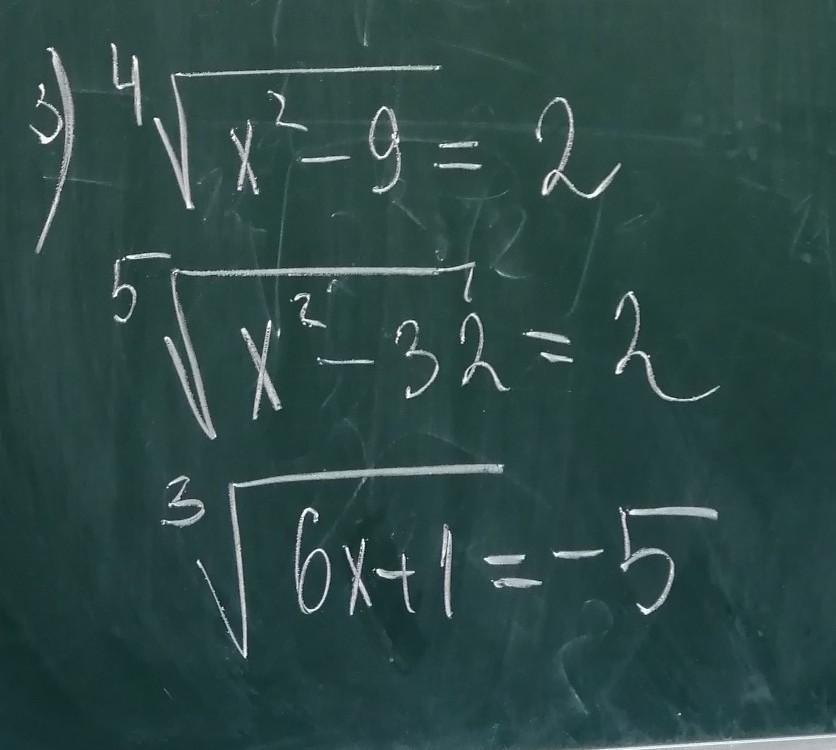 3) ⁴√(x² - 9) = 2
⁵√(x² - 32) = 2
³√(6x+1) = -5